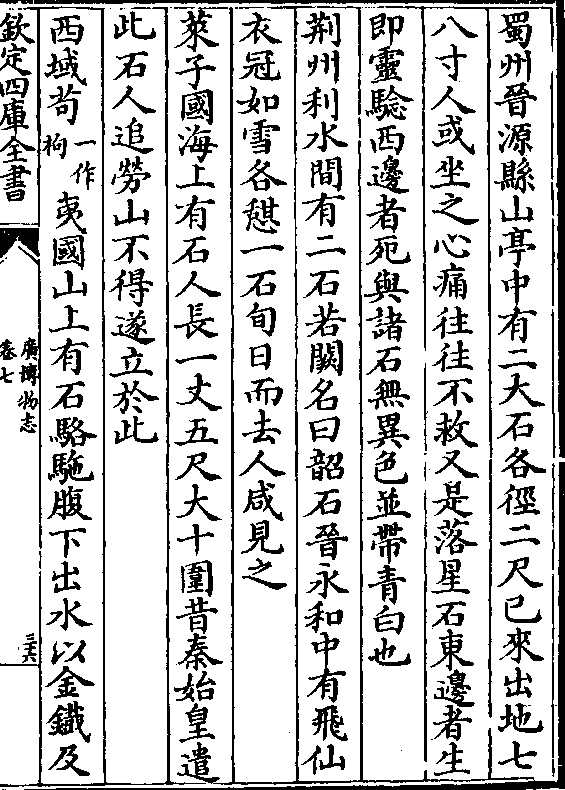 蜀州晉源縣山亭中有二大石各徑二尺已來出地七
八寸人或坐之心痛往往不救又是落星石東邊者生
即靈驗西邊者死與諸石無異色並帶青白也
荆州利水間有二石若闕名曰韶石晉永和中有飛仙
衣冠如雪各憇一石旬日而去人咸見之
萊子國海上有石人長一丈五尺大十圍昔秦始皇遣
此石人追勞山不得遂立於此
西域苟一作枸夷國山上有石駱駞腹下出水以金鐵及
欽定四庫全書
廣博物志
卷七
三六